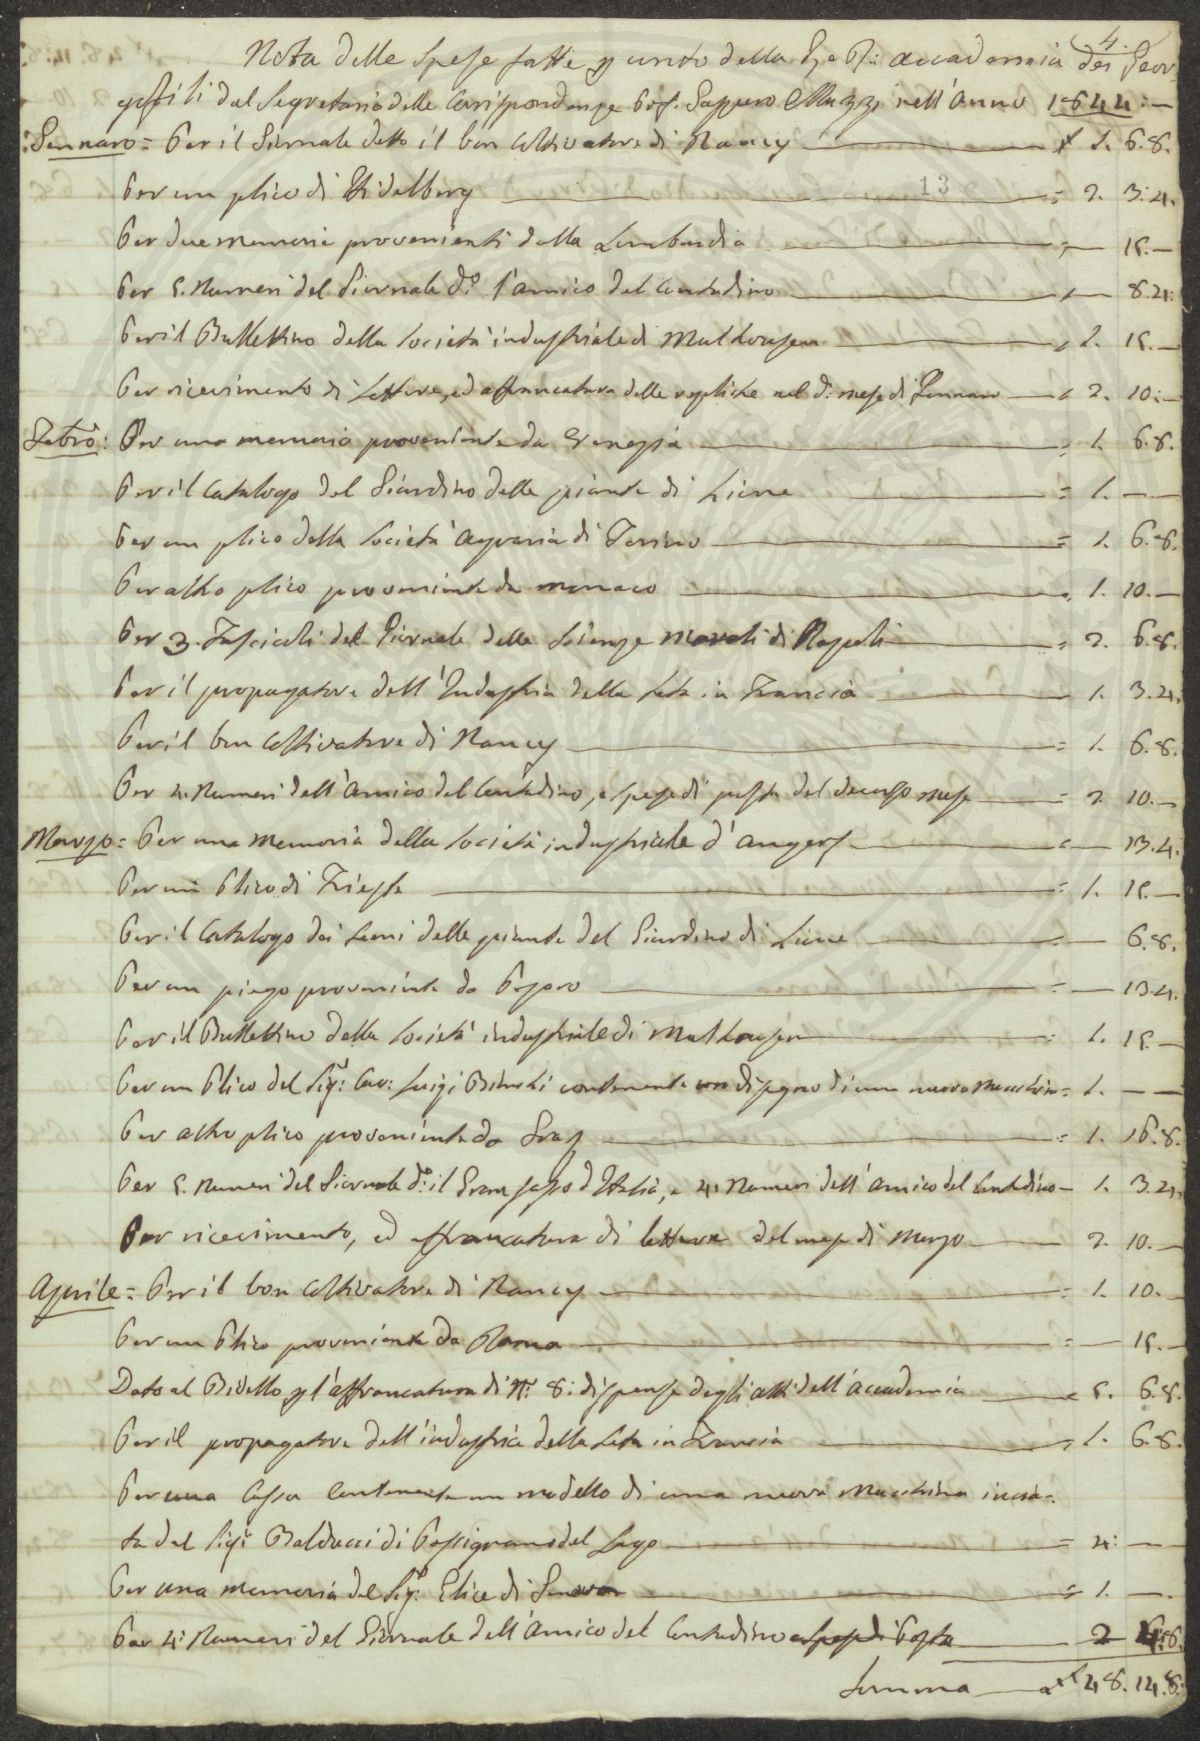 4.
Nota delle Spese fatte p conto della I. e R: Accademia dei Geor
gofili dal Segretario delle Corrispondenze Prof. Mazzi nell'Anno 1844:—
Gennaro = Per il Giornale detto il bon Coltivatore di Nancy — £ 1. 6.8.
13
Per un plico di Eidelberg — = 2. 3.4.
Per due memorie provenienti dalla Lombardia — = — 15.—
Per 5. Numeri del Giornale d.o l'amico del Contadino — 8.4:
Per il Bullettino della Società industriale di Mulhousen — 1. 15.—
Per ricevimento di Lettere, ed affrancatura delle repliche nel d. mese di Gennaro — 2. 10:—
Febro: Per una memoria proveniente da Venezia — = 1. 6.8.
Per il Catalogo del Giardino delle piante di Lione — = 1. — —
Per un plico della Società Agraria di Torino — = 1. 6.8.
Per altro plico proveniente da Monaco — 1. 10.—
Per 3. Fascicoli del Giornale delle Scienze Morali di Napoli — = 2. 6.8.
Per il propagatore dell'Industria della Seta in Francia — 1. 3.4.
Per il bon Coltivatore di Nancy — = 1. 6.8.
Per 4. Numeri dell'Amico del Contadino, e spese di posta del decorso mese — = 2 10.—
Marzo = Per una Memoria della Società industriale d'Angers — 13.4.
Per un Plico di Trieste — = 1. 15.—
Per il Catalogo dei Semi delle piante del Giardino di Lione — 6.8.
Per un piego proveniente da Pesaro — = — 13.4.
Per il Bullettino della Società industriale di Mulhousen — = 1. 15.—
Per un Plico del Sig.r Cav: Luigi contenente un disegno di una nuova Macchina = 1. — —
Per altro plico proveniente da Graz — = 1. 16.8.
Per 5. Numeri del Giornale d.o il Gran Sasso d'Italia, e 4. Numeri dell'Amico del Contadino — 1. 3.4.
Per ricevimento, ed affrancatura di lettere del mese di Marzo — 2. 10.—
Aprile = Per il bon Coltivatore di Nancy — = 1. 10.—
Per un Plico proveniente da Roma — = — 15.—
Dato al Bidello p l'affrancatura di N.o 8: dispense degli atti dell'Accademia — 5. 6.8.
Per il propagatore dell'industria della Seta in Francia — 1. 6.8.
Per una Cassa Contenente un modello di una nuova Macchina invia-
ta dal Sig.r Balducci di Passignano del Lago — = 4: —
Per una memoria del Sig.r Elice di Genova — = 1. —.
Per 4: Numeri del Giornale dell'Amico del Contadino e spese di Posta — 2 6.8.
Somma — £ 48. 14.8.